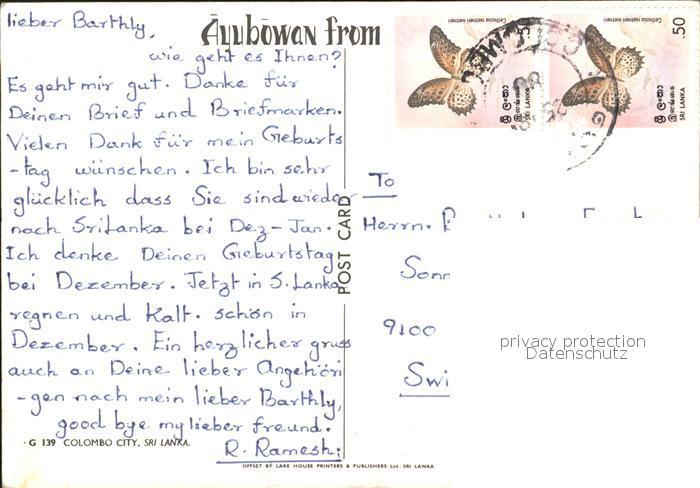 lieber Barthly,
Āyubōwan from
wie geht es Ihnen?
Es geht mir gut. Danke für
Deinen Brief und Briefmarken.
Vielen Dank für mein Geburts
-tag wünschen. Ich bin sehr
glücklich dass Sie sind wieder
nach SriLanka bei Dez-Jan.
Ich denke Deinen Geburtstag
bei Dezember. Jetzt in S.Lanka
regnen und Kalt. schön in
Dezember. Ein herzlicher gruss
auch an Deine lieber Angehöri
-gen nach mein lieber Barthly,
good bye my lieber freund.
R. Ramesh:
· G 139 COLOMBO CITY, SRI LANKA.
OFFSET BY LAKE HOUSE PRINTERS & PUBLISHERS Ltd. SRI LANKA
POST CARD
.50
ශ්‍රී ලංකා
இலங்கை
SRI LANKA
Cethosia nietneri nietneri
.50
ශ්‍රී ලංකා
இலங்கை
SRI LANKA
Cethosia nietneri nietneri
To
Herrn.
Sonn
9100
Swi
privacy protection
Datenschutz